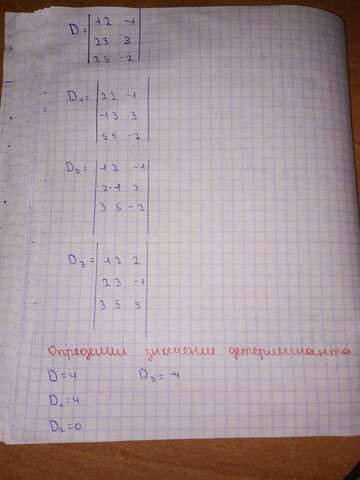 D = | 1 2 -1
2 3 3
2 5 -2 |
D₁ = | 2 2 -1
-1 3 3
5 5 -2 |
D₂ = | 1 2 -1
2 -1 3
3 5 -2 |
D₃ = | 1 2 2
2 3 -1
3 5 5 |
Определим значение детерминанта
D = 4 D₃ = -4
D₁ = 4
D₂ = 0